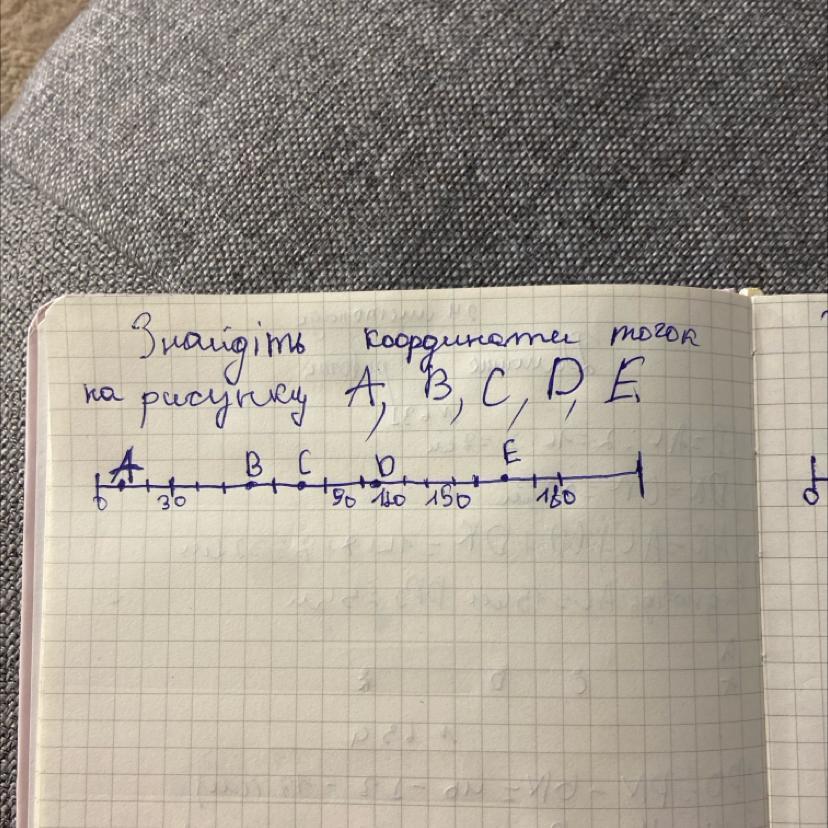 Знайдіть координати точок
на рисунку A, B, C, D, E
A B C D E
0 30 90 120 150 180
0